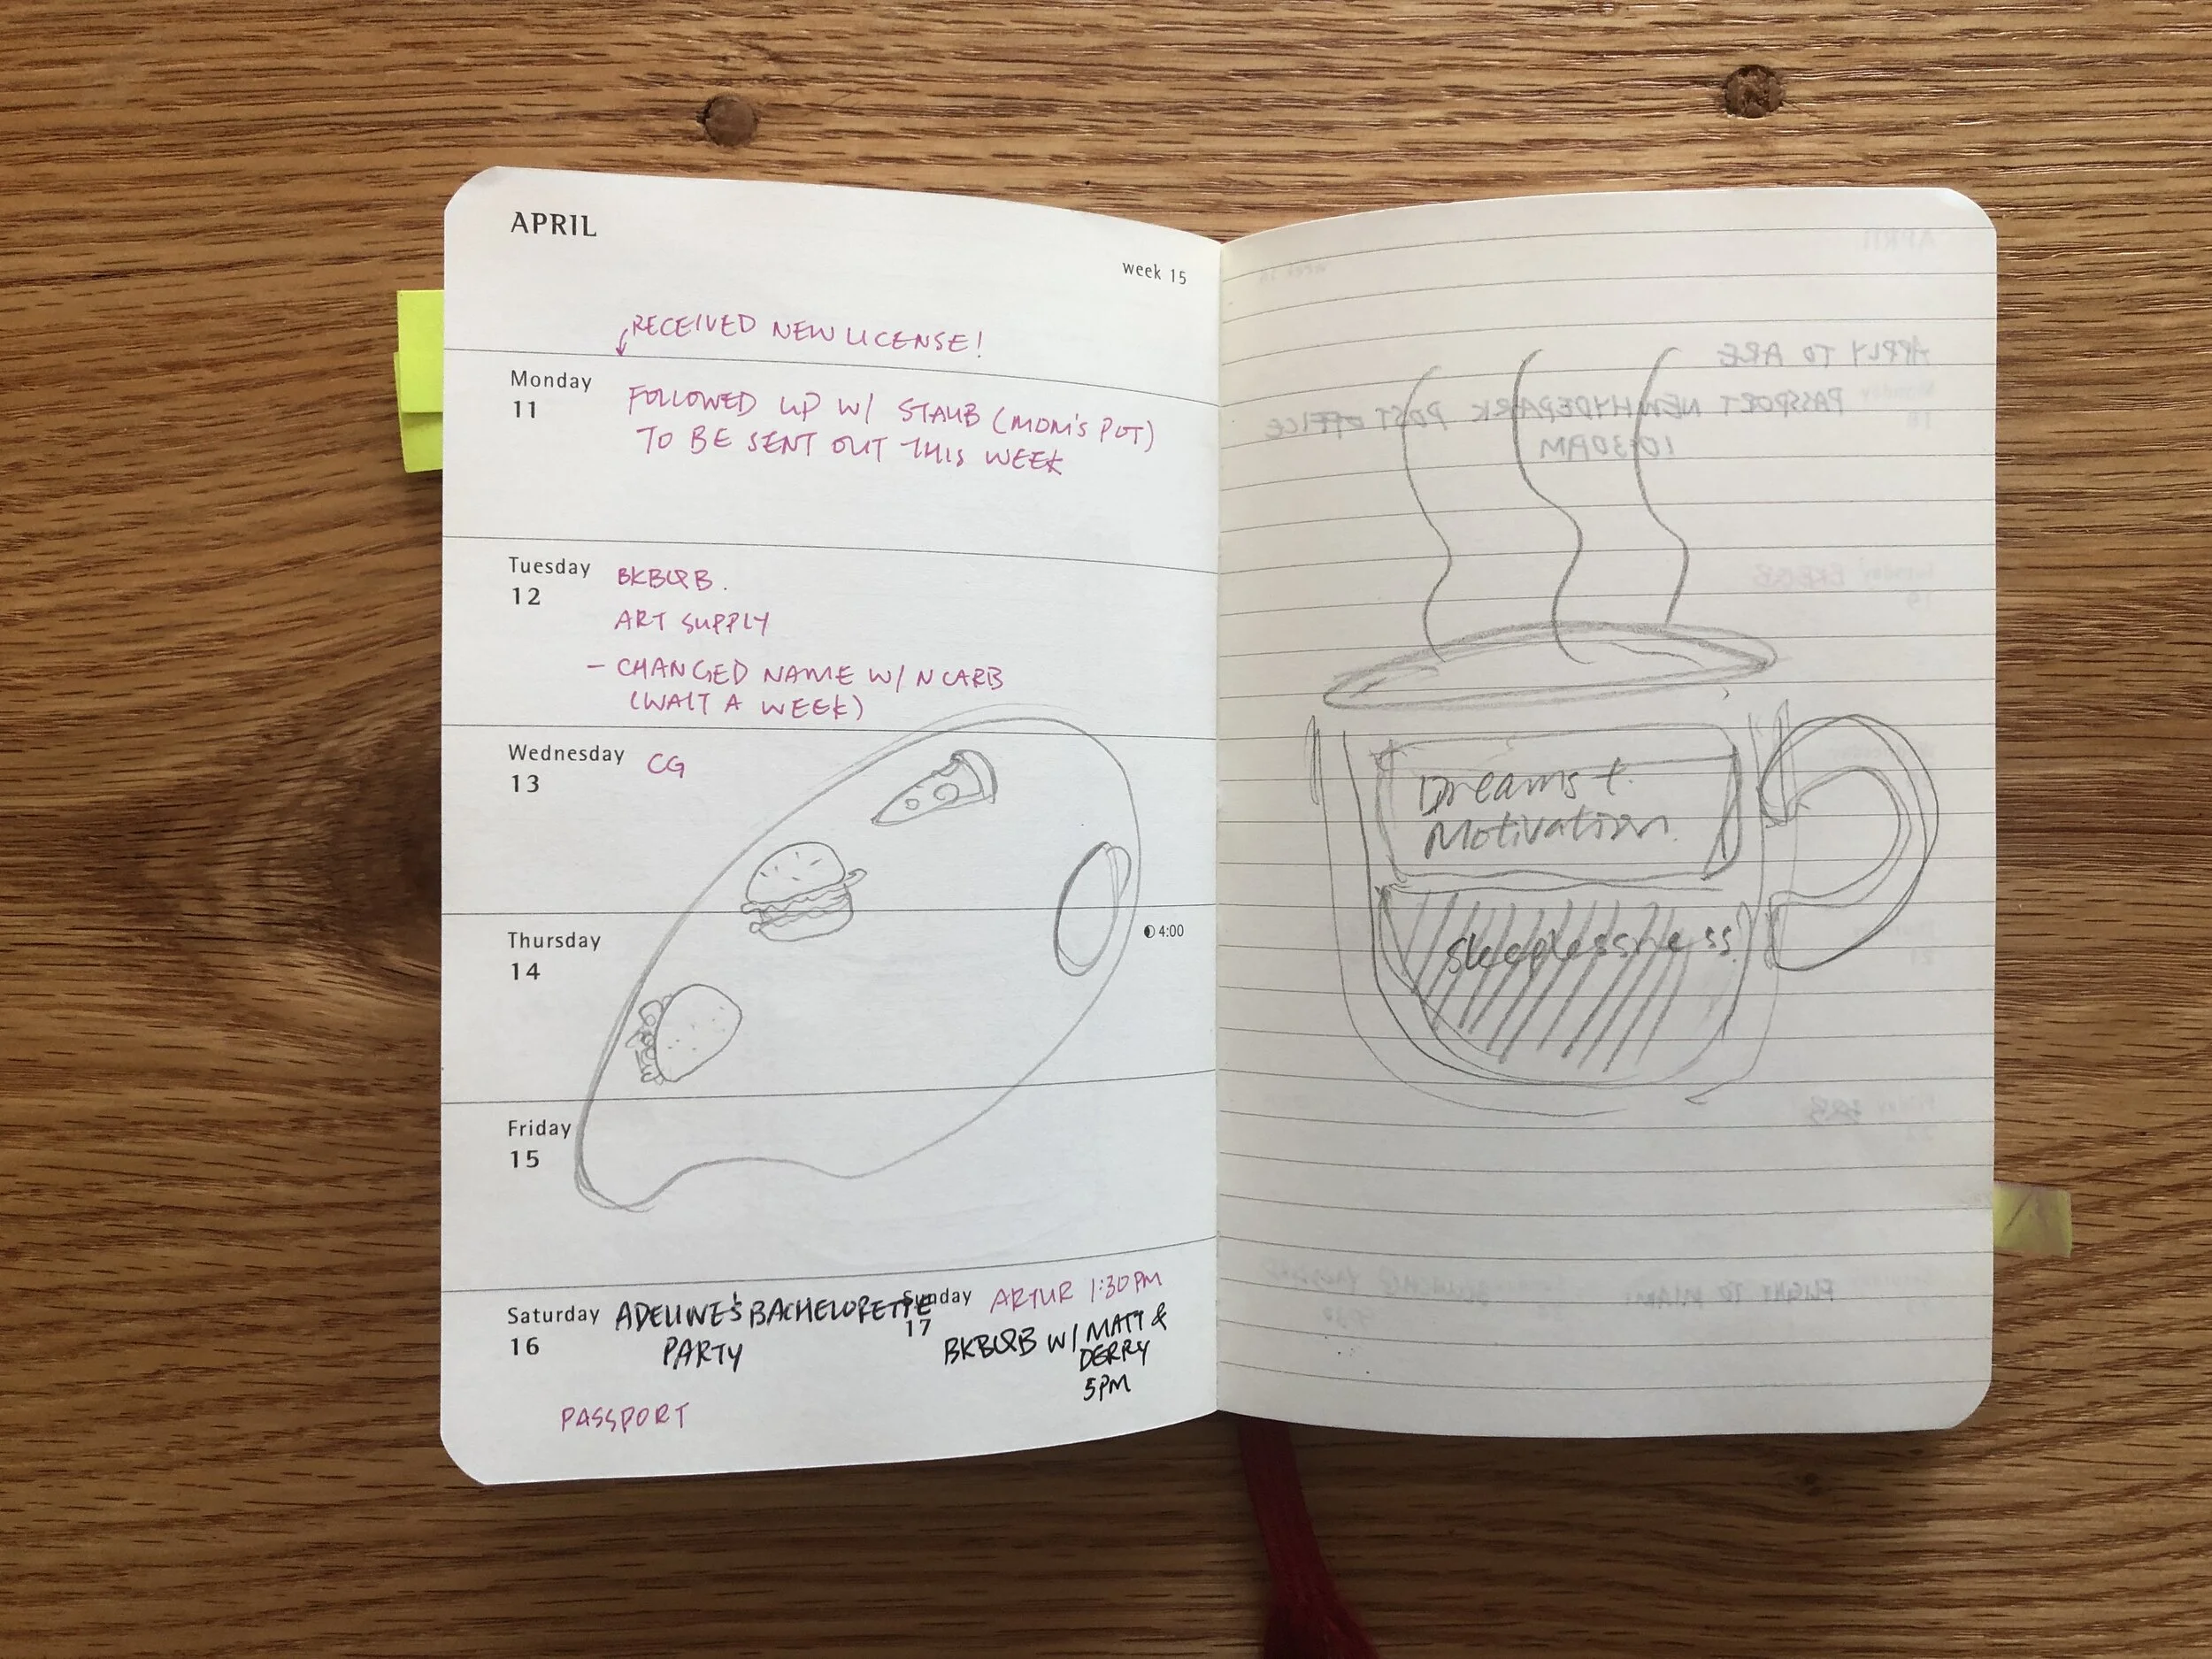 APRIL
week 15
RECEIVED NEW LICENSE!
Monday
11
FOLLOWED UP W/ STAUB (MOM'S POT)
TO BE SENT OUT THIS WEEK
Tuesday
12
BKBQB.
ART SUPPLY
- CHANGED NAME W/ NCARB
(WAIT A WEEK)
Wednesday
13
CG
Thursday
14
4:00
Friday
15
Saturday
16
ADELINE'S BACHELORETTE
PARTY
PASSPORT
Sunday
17
ARTUR 1:30PM
BKBQB W/ MATT &
DERRY
5PM
APRIL
APPLY TO ARE
PASSPORT NEW HYDEPARK POST OFFICE
10:30AM
Dreams +
Motivation
sleeplessness!
FLIGHT TO MIAMI